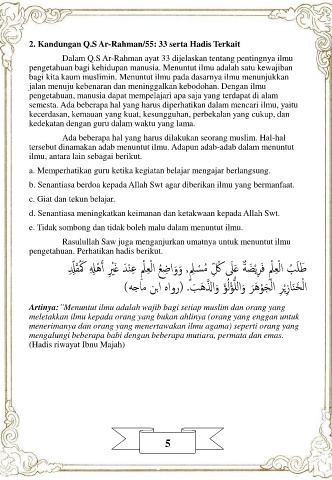 2. Kandungan Q.S Ar-Rahman/55: 33 serta Hadis Terkait
Dalam Q.S Ar-Rahman ayat 33 dijelaskan tentang pentingnya ilmu
pengetahuan bagi kehidupan manusia. Menuntut ilmu adalah satu kewajiban
bagi kita kaum muslimin. Menuntut ilmu pada dasarnya ilmu menunjukkan
jalan menuju kebenaran dan meninggalkan kebodohan. Dengan ilmu
pengetahuan, manusia dapat mempelajari apa saja yang terdapat di alam
semesta. Ada beberapa hal yang harus diperhatikan dalam mencari ilmu, yaitu
kecerdasan, kemauan yang kuat, kesungguhan, perbekalan yang cukup, dan
kedekatan dengan guru dalam waktu yang lama.
Ada beberapa hal yang harus dilakukan seorang muslim. Hal-hal
tersebut dinamakan adab menuntut ilmu. Adapun adab-adab dalam menuntut
ilmu, antara lain sebagai berikut.
a. Memperhatikan guru ketika kegiatan belajar mengajar berlangsung.
b. Senantiasa berdoa kepada Allah Swt agar diberikan ilmu yang bermanfaat.
c. Giat dan tekun belajar.
d. Senantiasa meningkatkan keimanan dan ketakwaan kepada Allah Swt.
e. Tidak sombong dan tidak boleh malu dalam menuntut ilmu.
Rasulullah Saw juga menganjurkan umatnya untuk menuntut ilmu
pengetahuan. Perhatikan hadis berikut.
طَلَبُ الْعِلْمِ فَرِيْضَةٌ عَلَى كُلِّ مُسْلِمٍ, وَوَاضِعُ الْعِلْمِ عِنْدَ غَيْرِ أَهْلِهِ كَمُقَلِّدِ
الْخَنَازِيْرِ الْجَوْهَرَ وَاللُّؤْلُؤَ وَالذَّهَبَ. (رواه ابن ماجه)
Artinya: "Menuntut ilmu adalah wajib bagi setiap muslim dan orang yang
meletakkan ilmu kepada orang yang bukan ahlinya (orang yang enggan untuk
menerimanya dan orang yang menertawakan ilmu agama) seperti orang yang
mengalungi beberapa babi dengan beberapa mutiara, permata dan emas.
(Hadis riwayat Ibnu Majah)
5